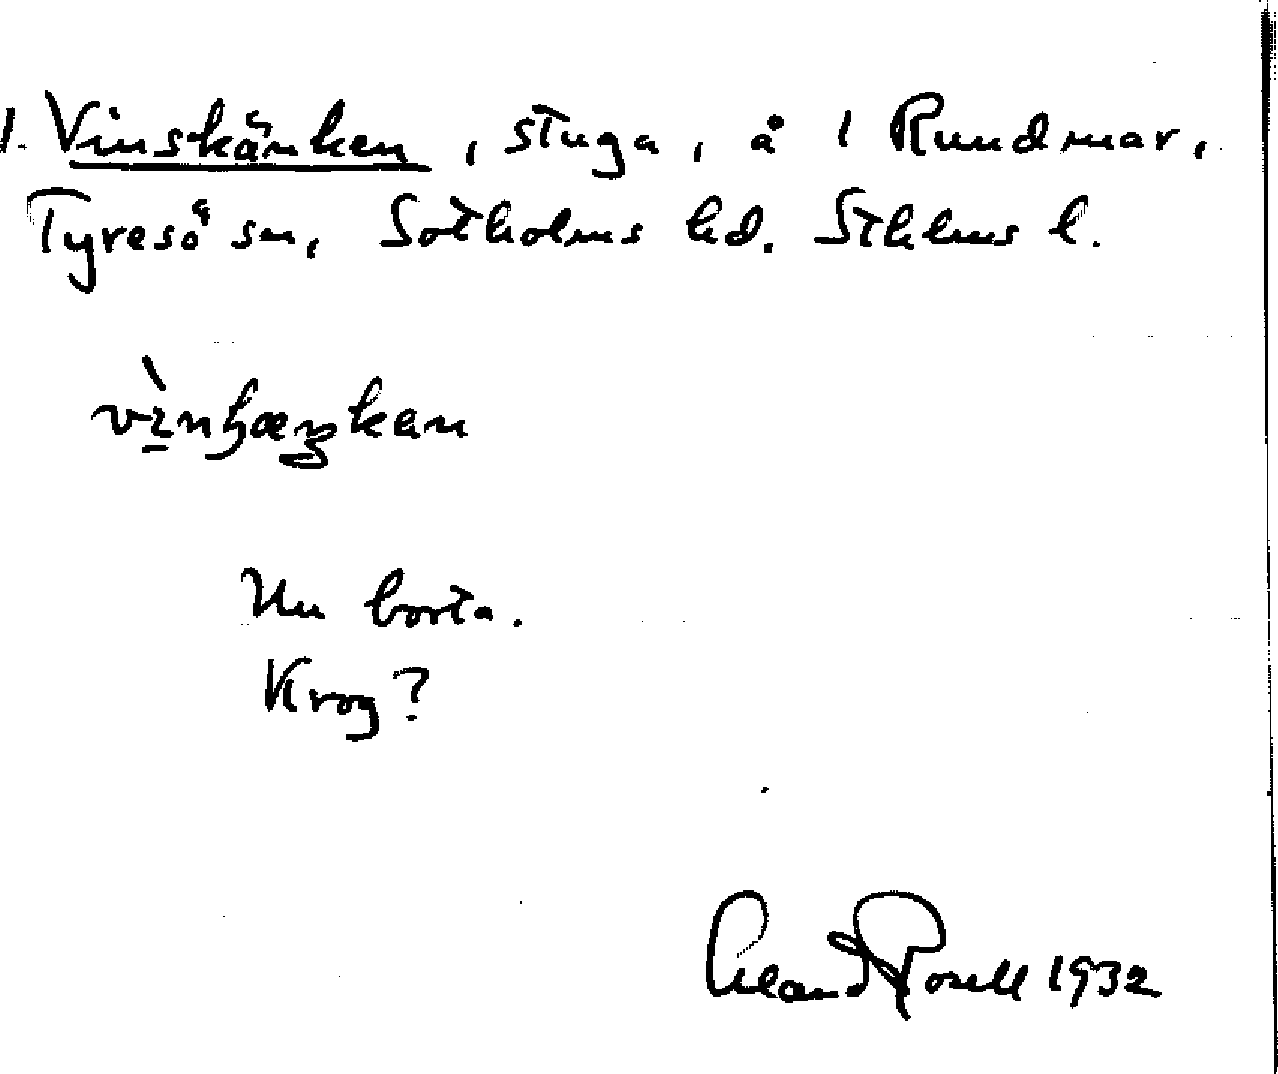 1. Vinskänken, stuga, å 1 Rundmar,
Tyresö sn, Sotholms hd. Sthlms l.
Nu borta.
Krog?
1932